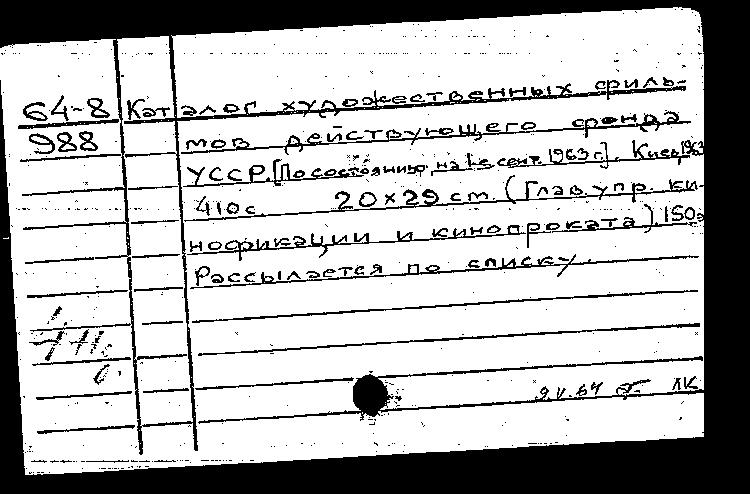 64-8 Каталог художественных филь-
988 мов действующего фонда
УССР. [По состоянию на 1-е сент. 1963 г.]. Киев, 1963
410 с. 20×29 cm. (Глав. упр. ки-
нофикации и кинопроката). 150э
Рассылается по списку.
9.V.64 ЛК